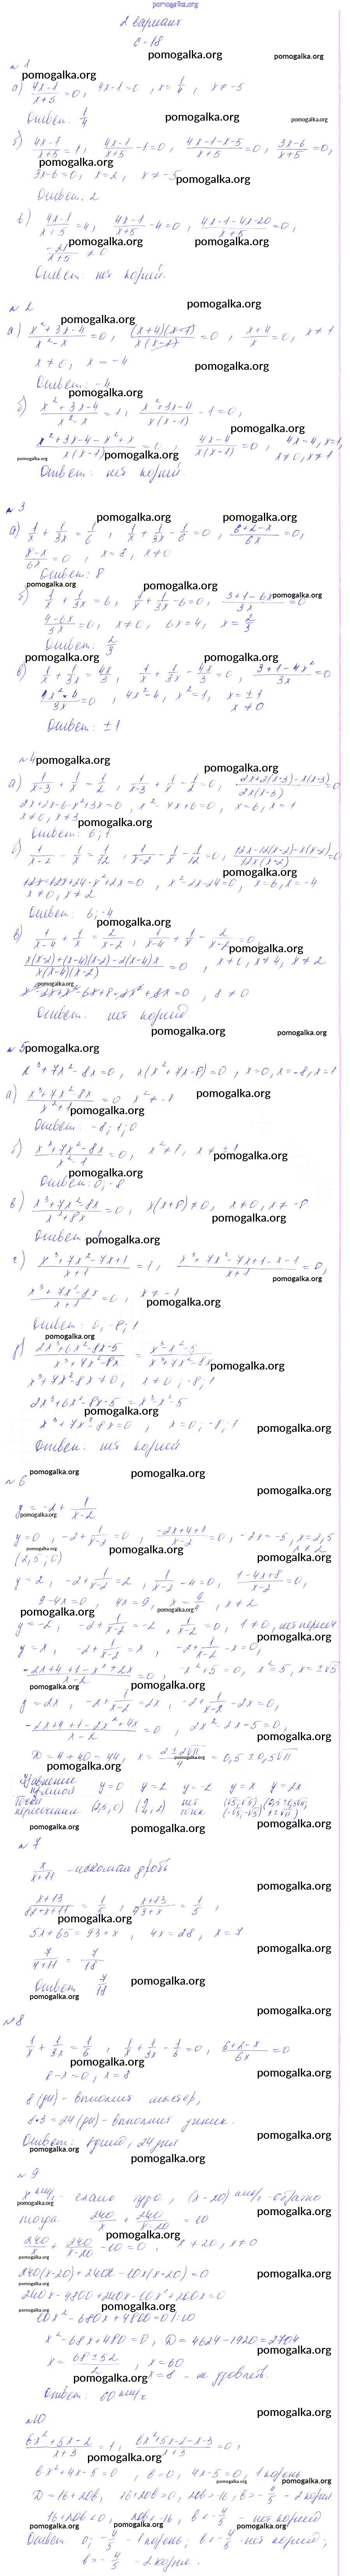 pomogalka.org
2 вариант
С-18
№1
а) (4x-1)/(x+5) = 0, 4x-1=0, x = 1/4, x ≠ -5
Ответ: 1/4
б) (4x-1)/(x+5) = 1, (4x-1)/(x+5) - 1 = 0, (4x-1-x-5)/(x+5) = 0, (3x-6)/(x+5) = 0,
3x-6=0, x=2, x ≠ -5
Ответ: 2
в) (4x-1)/(x+5) = 4, (4x-1)/(x+5) - 4 = 0, (4x-1-4x-20)/(x+5) = 0,
-21/(x+5) ≠ 0
Ответ: нет корней.
№2
а) (x²+3x-4)/(x²-x) = 0, ((x+4)(x-1))/(x(x-1)) = 0, (x+4)/x = 0, x ≠ 1
x ≠ 0, x = -4
Ответ: -4
б) (x²+3x-4)/(x²-x) = 1, (x²+3x-4)/(x(x-1)) - 1 = 0,
(x²+3x-4-x²+x)/(x(x-1)) = 0, (4x-4)/(x(x-1)) = 0, 4x=4, x=1,
x ≠ 0, x ≠ 1
Ответ: нет корней.
№3
а) 1/x + 1/3x = 1/6, 1/x + 1/3x - 1/6 = 0, (6+2-x)/6x = 0,
(8-x)/6x = 0, x = 8, x ≠ 0
Ответ: 8
б) 1/x + 1/3x = 6, 1/x + 1/3x - 6 = 0, (3+1-6x)/3x = 0
(4-6x)/3x = 0, x ≠ 0, 6x = 4, x = 2/3
Ответ: 2/3
в) 1/x + 1/3x = 4x/3, 1/x + 1/3x - 4x/3 = 0, (3+1-4x²)/3x = 0
4x²=4, x²=1, x = ±1
x ≠ 0
Ответ: ±1
№4
а) 1/(x-3) + 1/x = 1/2, 1/(x-3) + 1/x - 1/2 = 0, (2x+2(x-3)-x(x-3))/(2x(x-3)) = 0
2x+2x-6-x²+3x=0, x=6, x=1
x ≠ 0, x ≠ 3
Ответ: 6; 1
б) 1/(x-2) - 1/x = 1/12, 1/(x-2) - 1/x - 1/12 = 0, (12x-12(x-2)-x(x-2))/(12x(x-2)) = 0
12x-12x+24-x²+2x=0, x²-2x-24=0, x=6, x=-4
x ≠ 0, x ≠ 2
Ответ: 6; -4
в) 1/(x-4) + 1/x = 2/(x-2), 1/(x-4) + 1/x - 2/(x-2) = 0,
(x(x-2)+(x-4)(x-2)-2(x-4)x)/(x(x-4)(x-2)) = 0, x ≠ 0, x ≠ 4, x ≠ 2
x²-2x+x²-6x+8-2x²+8x=0, 8 ≠ 0
Ответ: нет корней.
№5
x³+7x²-8x=0, x(x²+7x-8)=0, x=0, x=-8, x=1
а) (x³+7x²-8x)/(x²+1) = 0 x² ≠ -1
Ответ: -8; 1; 0
б) (x³+7x²-8x)/(x²-1) = 0, x² ≠ 1, x ≠ ±1
Ответ: 0; -8
в) (x³+7x²-8x)/(x²+8x) = 0, x(x+8) ≠ 0, x ≠ 0, x ≠ -8
Ответ: 1
г) (x³+7x²-7x+1)/(x+1) = 1, (x³+7x²-7x+1-x-1)/(x+1) = 0,
(x³+7x²-8x)/(x+1) = 0, x ≠ -1
Ответ: 0; -8; 1
д) (2x³+6x²-8x-5)/(x³+7x²-8x) = (x³-x²-5)/(x³+7x²-8x)
x³+7x²-8x ≠ 0, x ≠ 0; -8; 1
2x³+6x²-8x-5 = x³-x²-5
x³+7x²-8x=0, x=0; -8; 1
Ответ: нет корней
№6
y = -2 + 1/(x-2)
y=0, -2 + 1/(x-2) = 0, (-2x+4+1)/(x-2) = 0, -2x=-5, x=2,5
x ≠ 2
(2,5; 0)
y=2, -2 + 1/(x-2) = 2, 1/(x-2) - 4 = 0, (1-4x+8)/(x-2) = 0,
9-4x=0, 4x=9, x = 9/4, x ≠ 2
y=-2, -2 + 1/(x-2) = -2, 1/(x-2) = 0, 1 ≠ 0, нет пересеч.
y=x, -2 + 1/(x-2) = x, -2 + 1/(x-2) - x = 0,
(-2x+4+1-x²+2x)/(x-2) = 0, -x²+5=0, x²=5, x=±√5
y=2x, -2 + 1/(x-2) = 2x, -2 + 1/(x-2) - 2x = 0,
(-2x+4+1-2x²+4x)/(x-2) = 0, 2x²-2x-5=0,
D = 4+40 = 44, x = (2±2√11)/4 = 0,5 ± 0,5√11
Уравнение прямой y=0 y=2 y=-2 y=x y=2x
Точки пересечения (2,5; 0) нет точек (√5; √5) (-√5; -√5)
№7
x/(x+11) - искомая дробь
(x+13)/(82+x+11) = 1/5, (x+13)/(93+x) = 1/5,
5x+65=93+x, 4x=28, x=7
7/(7+11) = 7/18
Ответ 7/18
№8
1/x + 1/3x = 1/6, 1/x + 1/3x - 1/6 = 0, (6+2-x)/6x = 0
8-x=0, x=8
8 (дн) - выполнит мастер,
8·3=24 (дн) - выполнит ученик.
Ответ: 8 дней, 24 дня
№9
x км/ч - ехало туда, (x-20) км/ч - обратно
тогда 240/x + 240/(x-20) = 10
240/x + 240/(x-20) - 10 = 0, x ≠ 20, x ≠ 0
240(x-20)+240x-10x(x-20)=0
240x-4800+240x-10x²+200x=0
10x²-680x+4800=0 |:10
x²-68x+480=0, D=4624-1920=2704
x = (68±52)/2, x=60
x=8 - не удовлетв.
Ответ: 60 км/ч
№10
(bx²+5x-2)/(x+3) = 1, (bx²+5x-2-x-3)/(x+3) = 0,
bx²+4x-5=0, b=0, 4x-5=0, 1 корень
D=16+20b, 16+20b>0, 20b>-16, b>-4/5 - 2 корня
16+20b<0, 20b<-16, b<-4/5 - нет корней
Ответ: 0; -4/5 - 1 корень; b<-4/5 - нет корней;
b>-4/5 - 2 корня.